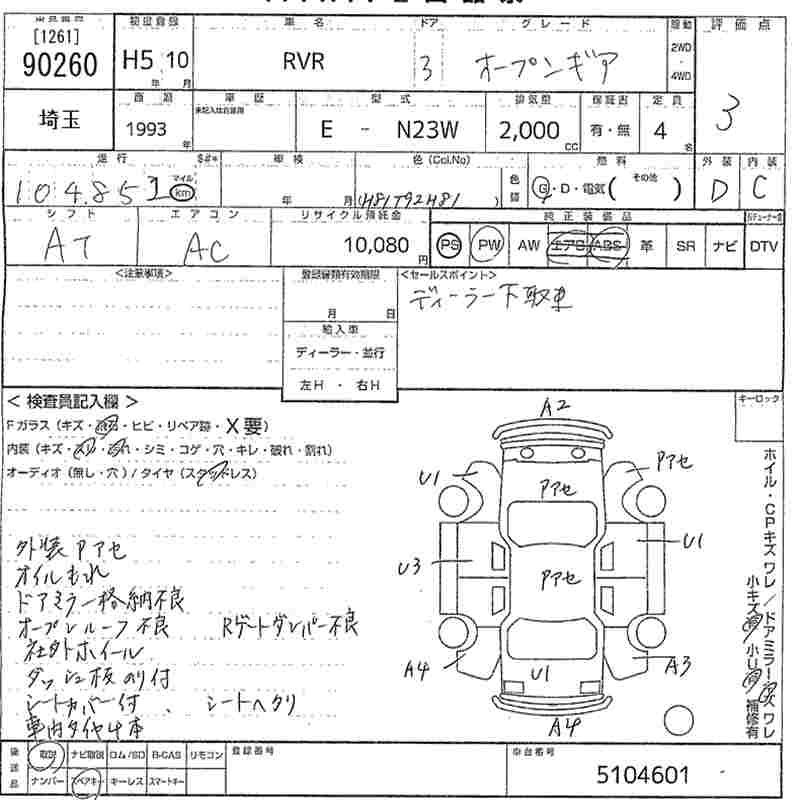 [1261]
90260
初度登録
H5 10
年 月
車名
RVR
ドア
3
グレード
オープンギア
駆動
2WD
・
4WD
評価点
3
埼玉
1993
年
車歴
型式
E - N23W
排気量
2,000
CC
保証書
有・無
定員
4
名
走行
104,851
マイル
km
車検
年 月
色(Col.No)
(H81T92H81 )
色替
燃料
G・D・電気( その他 )
外装
D
内装
C
シフト
AT
エアコン
AC
リサイクル預託金
10,080
円
純正装備品
PS PW AW エアB ABS 革 SR ナビ DTV
<注意事項>
登録書類有効期限
月 日
輸入車
ディーラー・並行
左H ・ 右H
<セールスポイント>
ディーラー下取車
<検査員記入欄>
Fガラス(キズ・飛石・ヒビ・リペア跡・X要)
内装(キズ・スリ・汚れ・シミ・コゲ・穴・キレ・破れ・割れ)
オーディオ(無し・穴)/タイヤ(スタッドレス)
外装Pアセ
オイルもれ
ドアミラー格納不良
オープンルーフ不良 Rゲートダンパー不良
社外ホイール
ダッシュ板のり付
シートカバー付、 シートヘタリ
車内タイヤ4本
キーロック
A2
U1
Pアセ
Pアセ
U3
U1
Pアセ
A4
U1
A3
A4
ホイル・CPキズワレ/ドアミラーキズワレ
小キズ有 小U有 補修有
後送品
取説 ナビ取説 ロム/SD B-CAS リモコン
ナンバー スペアキー キーレス スマートキー
登録番号
車台番号
5104601